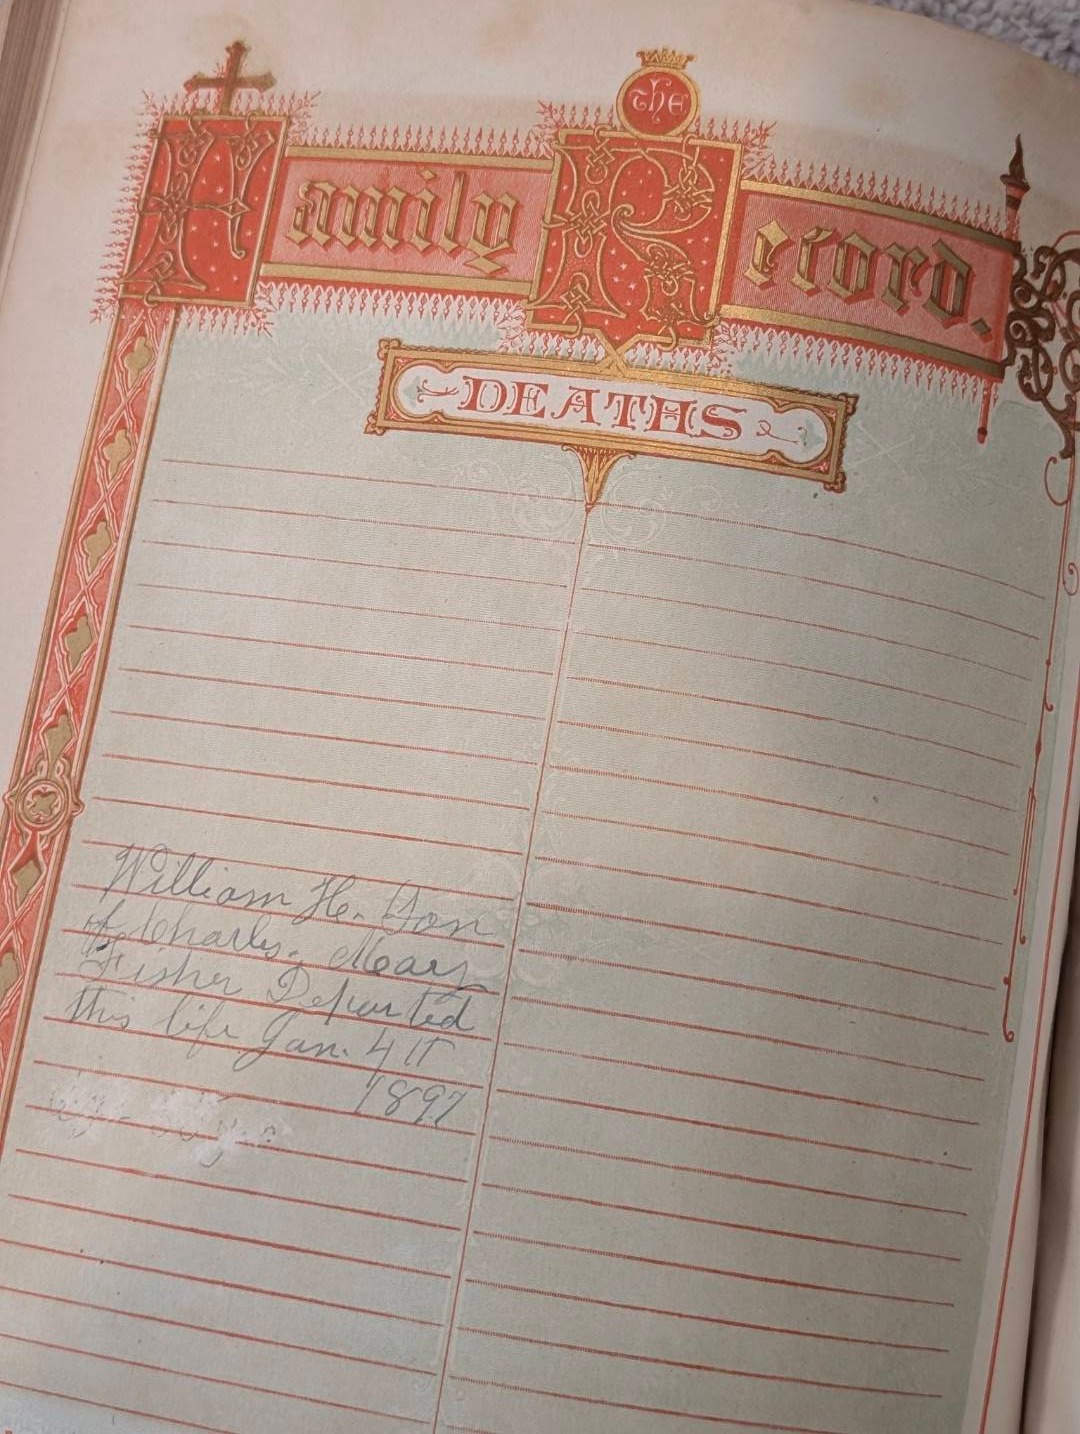 The
Family Record.
DEATHS
William H. Son
of Charles. Mary
Fisher Departed
this life Jan. 4
1897